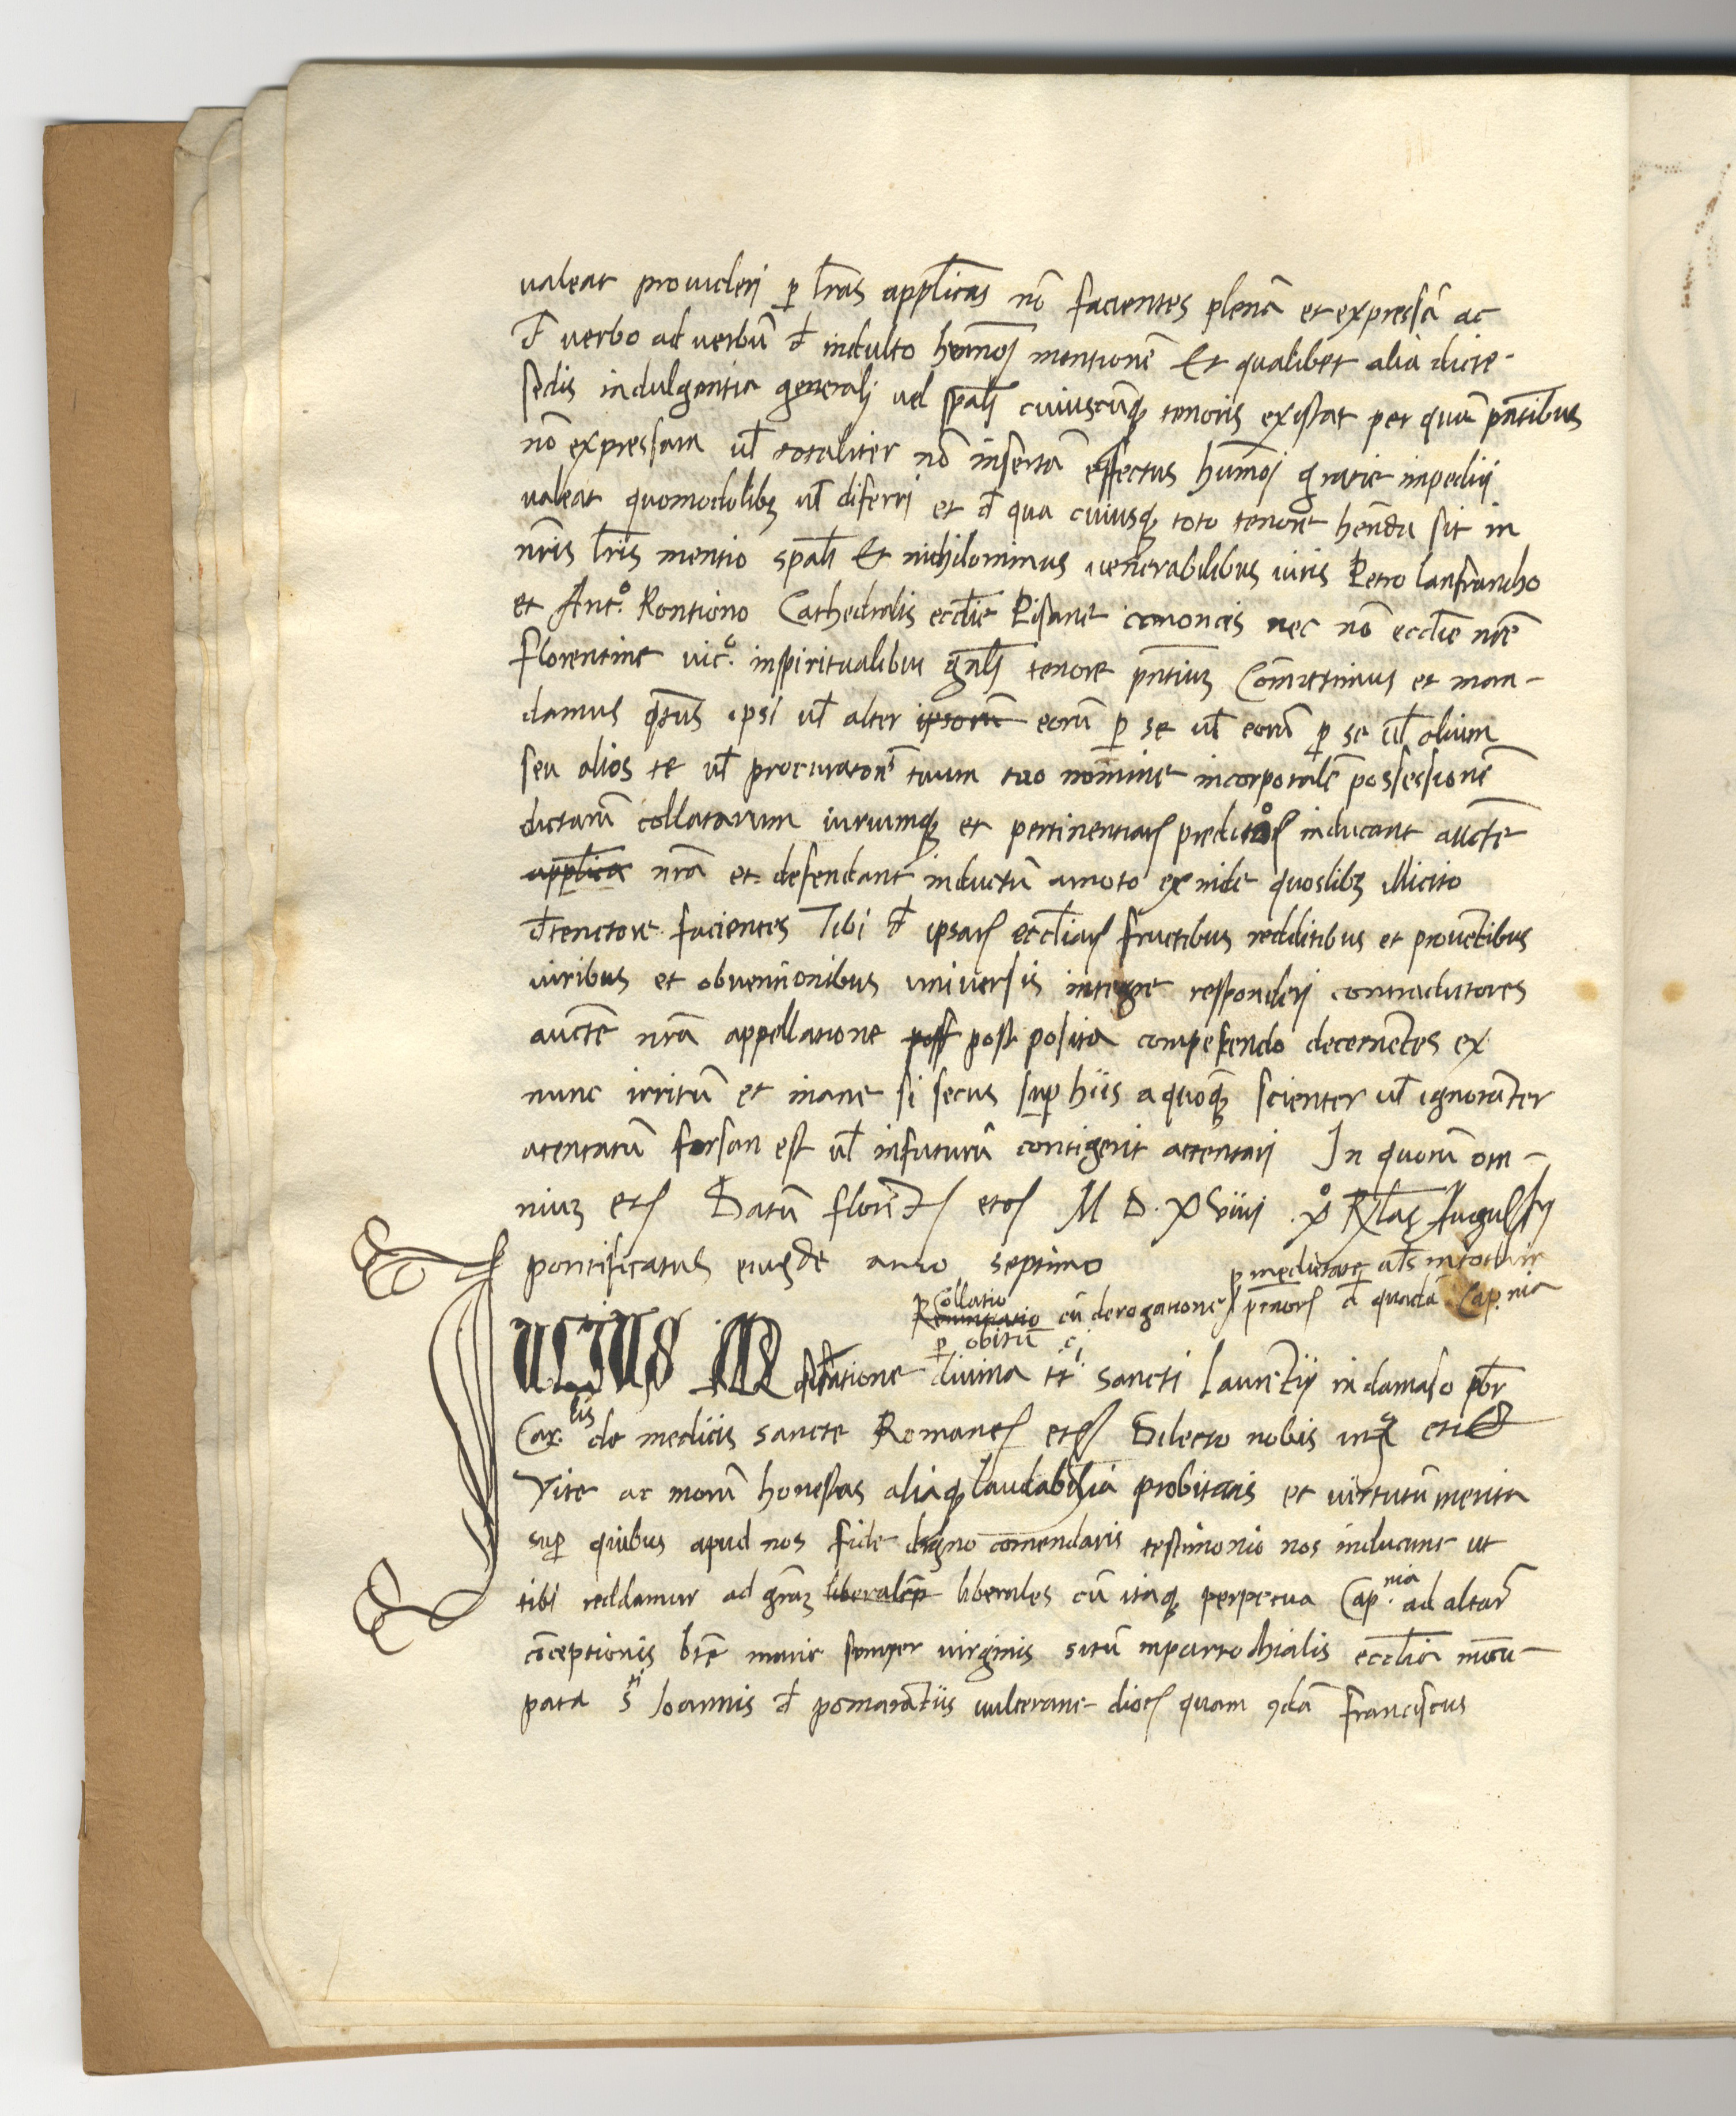 valeat provideri p lras applicas nō facientes plenā et expressā ac
đ verbo ad verbū đ indulto hmōi mentionē Et qualibet alia dicte
sedis indulgentia generali vel spāli cuiuscūq tenoris existat per quā pñtibus
nō expressam vł totaliter nō insertā effectus hmōi gratie impediri
valeat quomodolibȝ vł diferri et đ qua cuiusq toto tenore hēnda sit in
nr̄is lr̄is mentio spāli Et nichilominus venerabilibus viris Petro lanfrancho
et Ant.º Rontiono Cathedralis ecclīe Pisane canonicis nec nō ecclīe nr̄e
florentine vic.º inspiritualibus gñali tenore pñtiuȝ Cōmittimus et man-
damus qtus ipsi vł alter ipsorū eorū p se vł eorū p se vł alium
seu alios te vł procuratorē tuum tuo nomine incorporalē possessionē
dictarū collatarum iuriumq et pertinentiarꝝ predictorꝝ inducant aucte
applica nr̄a et defendant inductū amoto exinde quoslibȝ illicito
đtenctore facientes Tibi đ ipsarꝝ ecclīarꝝ fructibus redditibus et proventibus
iuribus et obventionibus universis integre responderi contradictores
auctē nr̄a appellatione post post posita compescendo decernētes ex
nunc irritū et inane si secus sup hiis a quoq scienter vł ignorāter
atentatū forsan est vł infuturū contigerit attentari In quorū om-
niuȝ etc Datū florētꝫ etc M D. XVIIII .xº Klas Augusti
pontificatus eiusdē anno septimo
p medietate als in totum
Collatio
Renuntiatio cū derogatione p̄rnorꝝ đ quadā Cap.nia
p obitū
IULIUS M̄ seratione divina tt.i sancti laurētii in damaso pbr
Car.lis de medicis sancte Romane etc Dilecto nobis in etc
Vite ac morū honestas aliaq laudabilia probitatis et virtutū merita
sup quibus apud nos fide digno comendaris testimonio nos inducunt ut
tibi reddamur ad gr̄aȝ liberalep liberales cū itaq perpetua Cap.nia ad altar̄
cōceptionis btē marie semper virginis sitū inparrochialis ecclīa nūcu-
pata s.ti Joannis đ pomarātiis vulterane dioc quam qdā franciscus